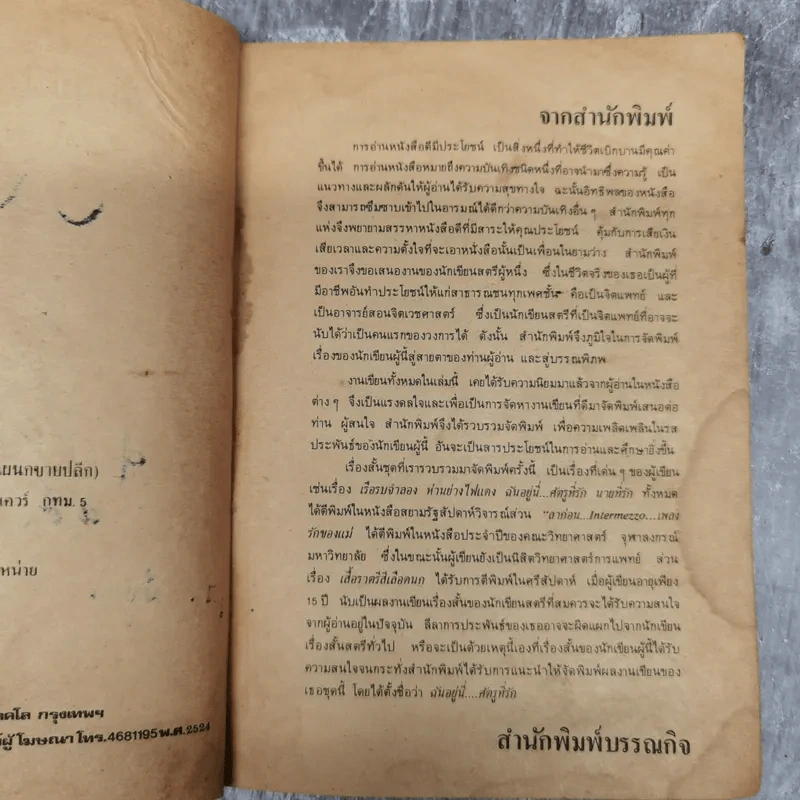 แผนกขายปลีก)
แควร์ กทม. 5
หน่าย
กรุงเทพฯ
ผู้โฆษณา โทร.4681195 พ.ศ.2524
จากสำนักพิมพ์
การอ่านหนังสือดีมีประโยชน์ เป็นสิ่งหนึ่งที่ทำให้ชีวิตเบิกบานมีคุณค่า
ขึ้นได้ การอ่านหนังสือหมายถึงความบันเทิงชนิดหนึ่งที่อาจนำมาซึ่งความรู้ เป็น
แนวทางและผลักดันให้ผู้อ่านได้รับความสุขทางใจ ฉะนั้นอิทธิพลของหนังสือ
จึงสามารถซึมซาบเข้าไปในอารมณ์ได้ดีกว่าความบันเทิงอื่น ๆ สำนักพิมพ์ทุก
แห่งจึงพยายามสรรหาหนังสือดีที่มีสาระให้คุณประโยชน์ คุ้มกับการเสียเงิน
เสียเวลาและความตั้งใจที่จะเอาหนังสือนั้นเป็นเพื่อนในยามว่าง สำนักพิมพ์
ของเราจึงขอเสนองานของนักเขียนสตรีผู้หนึ่ง ซึ่งในชีวิตจริงของเธอเป็นผู้ที่
มีอาชีพอันทำประโยชน์ให้แก่สาธารณชนทุกเพศชั้น คือเป็นจิตแพทย์ และ
เป็นอาจารย์สอนจิตเวชศาสตร์ ซึ่งเป็นนักเขียนสตรีที่เป็นจิตแพทย์ที่อาจจะ
นับได้ว่าเป็นคนแรกของวงการได้ ดังนั้น สำนักพิมพ์จึงภูมิใจในการจัดพิมพ์
เรื่องของนักเขียนผู้นี้สู่สายตาของท่านผู้อ่าน และสู่บรรณพิภพ
งานเขียนทั้งหมดในเล่มนี้ เคยได้รับความนิยมมาแล้วจากผู้อ่านในหนังสือ
ต่าง ๆ จึงเป็นแรงดลใจและเพื่อเป็นการจัดหางานเขียนที่ดีมาจัดพิมพ์เสนอต่อ
ท่าน ผู้สนใจ สำนักพิมพ์จึงได้รวบรวมจัดพิมพ์ เพื่อความเพลิดเพลินในรส
ประพันธ์ของนักเขียนผู้นี้ อันจะเป็นสารประโยชน์ในการอ่านและศึกษายิ่งขึ้น
เรื่องสั้นชุดที่เรารวบรวมมาจัดพิมพ์ครั้งนี้ เป็นเรื่องที่เด่น ๆ ของผู้เขียน
เช่นเรื่อง เรือรบจำลอง ห่านย่างไฟแดง ฉันอยู่นี่...ศัตรูที่รัก นายที่รัก ทั้งหมด
ได้ตีพิมพ์ในหนังสือสยามรัฐสัปดาห์วิจารณ์ส่วน "ลาก่อน...Intermezzo...เพลง
รักของแม่ ได้ตีพิมพ์ในหนังสือประจำปีของคณะวิทยาศาสตร์ จุฬาลงกรณ์
มหาวิทยาลัย ซึ่งในขณะนั้นผู้เขียนยังเป็นนิสิตวิทยาศาสตร์การแพทย์ ส่วน
เรื่อง เสื้อราตรีสีเลือดนก ได้รับการตีพิมพ์ในศรีสัปดาห์ เมื่อผู้เขียนอายุเพียง
15 ปี นับเป็นผลงานเขียนเรื่องสั้นของนักเขียนสตรีที่สมควรจะได้รับความสนใจ
จากผู้อ่านอยู่ในปัจจุบัน ลีลาการประพันธ์ของเธออาจจะผิดแผกไปจากนักเขียน
เรื่องสั้นสตรีทั่วไป หรือจะเป็นด้วยเหตุนี้เองที่เรื่องสั้นของนักเขียนผู้นี้ได้รับ
ความสนใจจนกระทั่งสำนักพิมพ์ได้รับการแนะนำให้จัดพิมพ์ผลงานเขียนของ
เธอชุดนี้ โดยได้ตั้งชื่อว่า ฉันอยู่นี่....ศัตรูที่รัก
สำนักพิมพ์บรรณกิจ